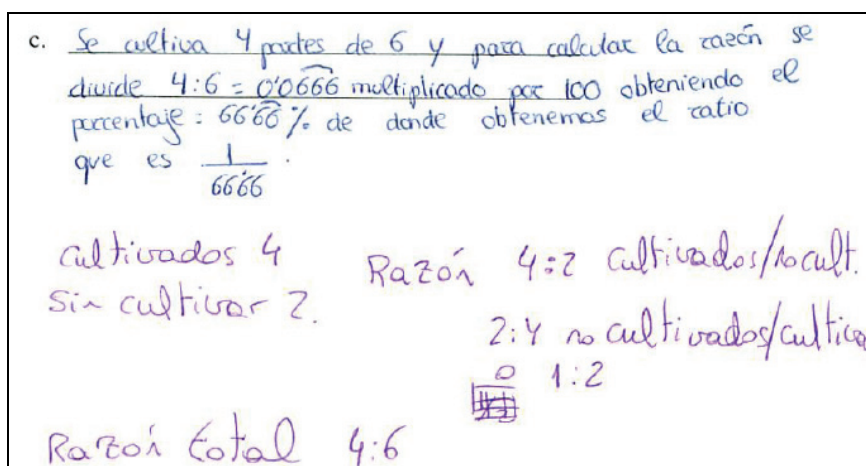 c. Se cultiva 4 partes de 6 y para calcular la razón se
divide 4:6 = 0'0666 multiplicado por 100 obteniendo el
porcentaje: 66'66 % de donde obtenemos el ratio
que es 1/66'66.
cultivados 4
sin cultivar 2.
Razón 4:2 cultivados/no cult.
2:4 no cultivados/cultiva
o 1:2
Razón total 4:6